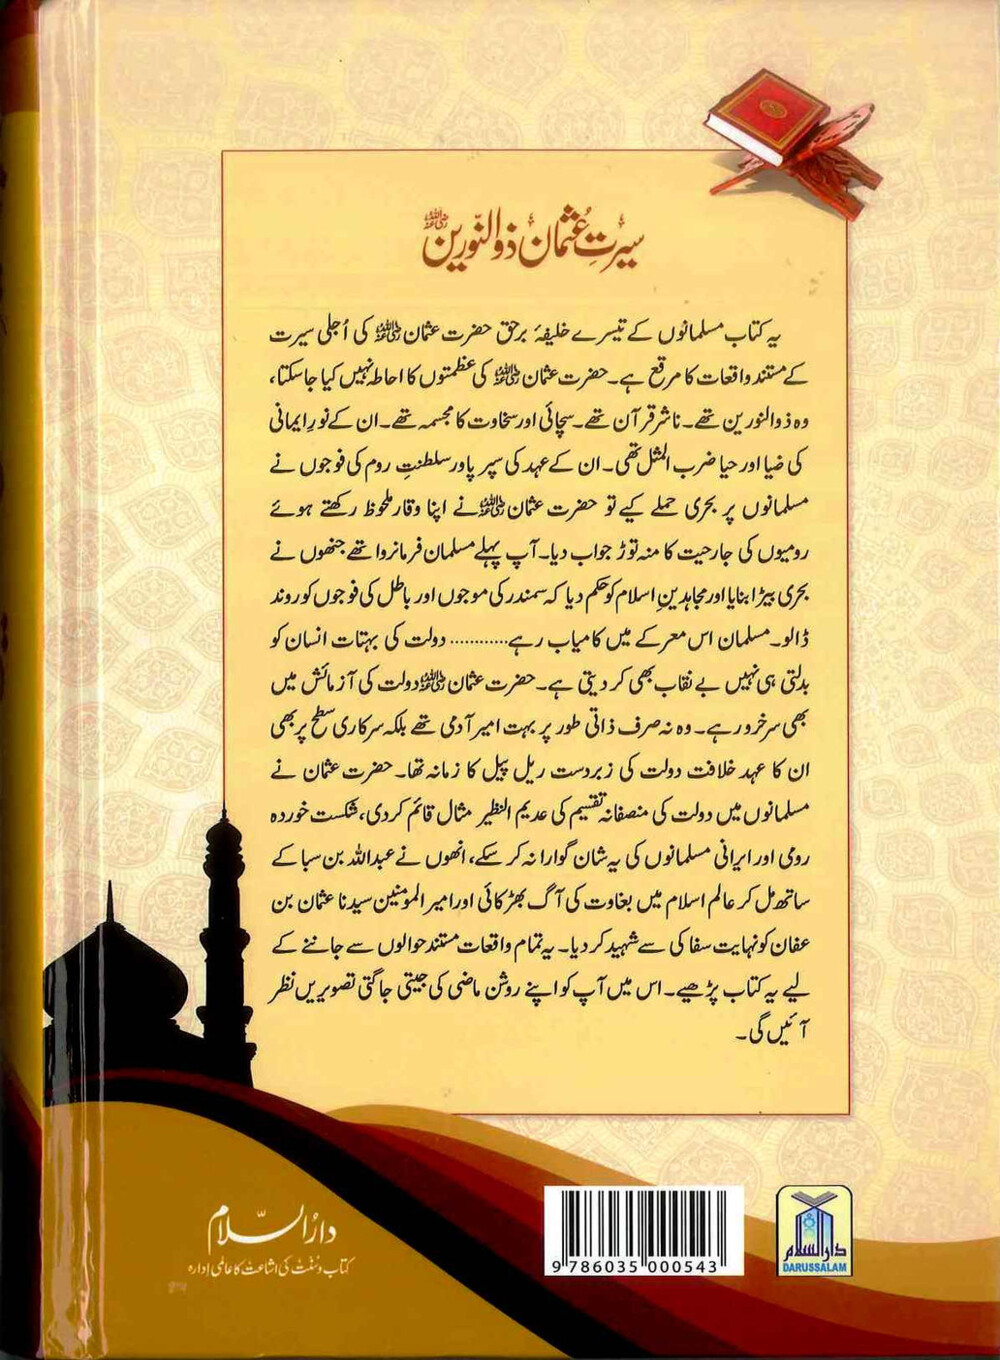 سیرتِ عُثمان ذوالنّورین رضی اللہ عنہ
یہ کتاب مسلمانوں کے تیسرے خلیفۂ برحق حضرت عثمان رضی اللہ عنہ کی اُجلی سیرت
کے مستند واقعات کا مرقع ہے۔ حضرت عثمان رضی اللہ عنہ کی عظمتوں کا احاطہ نہیں کیا جا سکتا،
وہ ذوالنورین تھے۔ ناشر قرآن تھے۔ سچائی اور سخاوت کا مجسمہ تھے۔ ان کے نورِ ایمانی
کی ضیا اور حیا ضرب المثل تھی۔ ان کے عہد کی سپر پاور سلطنتِ روم کی فوجوں نے
مسلمانوں پر بحری حملے کیے تو حضرت عثمان رضی اللہ عنہ نے اپنا وقار ملحوظ رکھتے ہوئے
رومیوں کی جارحیت کا منہ توڑ جواب دیا۔ آپ پہلے مسلمان فرمانروا تھے جنھوں نے
بحری بیڑا بنایا اور مجاہدینِ اسلام کو حکم دیا کہ سمندر کی موجوں اور باطل کی فوجوں کو روند
ڈالو۔ مسلمان اس معرکے میں کامیاب رہے........... دولت کی بہتات انسان کو
بدلتی ہی نہیں بے نقاب بھی کر دیتی ہے۔ حضرت عثمان رضی اللہ عنہ دولت کی آزمائش میں
بھی سرخرو رہے۔ وہ نہ صرف ذاتی طور پر بہت امیر آدمی تھے بلکہ سرکاری سطح پر بھی
ان کا عہد خلافت دولت کی زبردست ریل پیل کا زمانہ تھا۔ حضرت عثمان نے
مسلمانوں میں دولت کی منصفانہ تقسیم کی عدیم النظیر مثال قائم کر دی، شکست خوردہ
رومی اور ایرانی مسلمانوں کی یہ شان گوارا نہ کر سکے، انھوں نے عبداللہ بن سبا کے
ساتھ مل کر عالم اسلام میں بغاوت کی آگ بھڑکائی اور امیر المؤمنین سیدنا عثمان بن
عفان کو نہایت سفاکی سے شہید کر دیا۔ یہ تمام واقعات مستند حوالوں سے جاننے کے
لیے یہ کتاب پڑھیے۔ اس میں آپ کو اپنے روشن ماضی کی جیتی جاگتی تصویریں نظر
آئیں گی۔
دارُالسّلام
کتاب و سُنّت کی اشاعت کا عالمی ادارہ
9 786035 000543
دارالسلام
DARUSSALAM